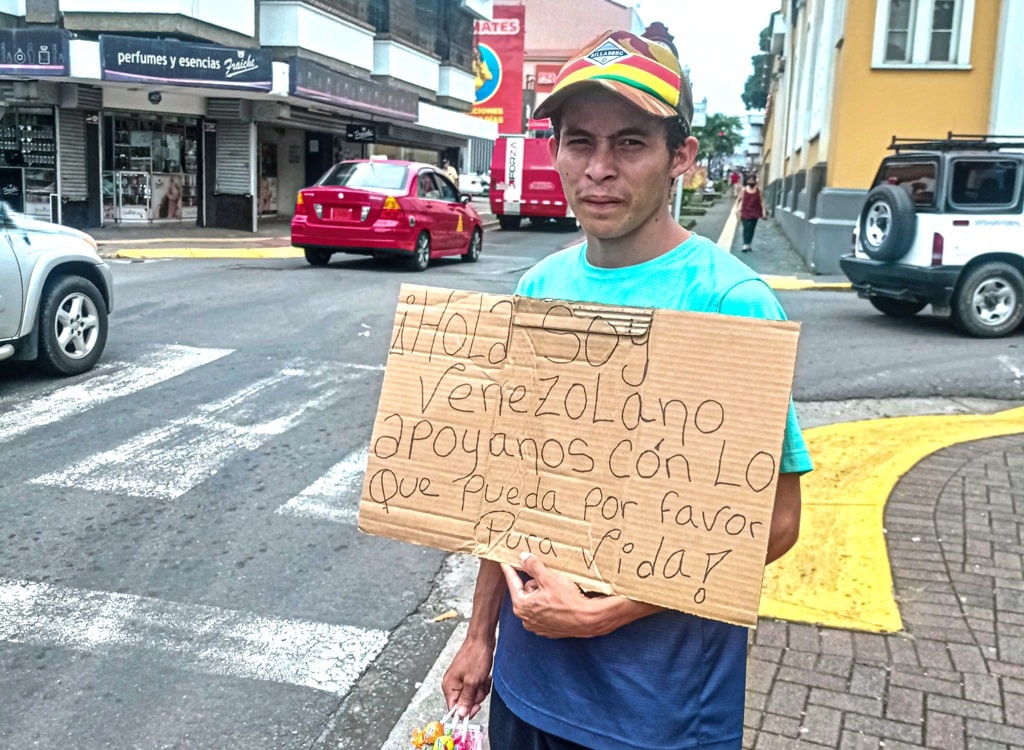 perfumes y esencias Fraiche
MATES
FORZA
CIONES
BILLABONG
¡Hola soy
Venezolano
apoyanos cón Lo
Que pueda por favor
Pura Vida!